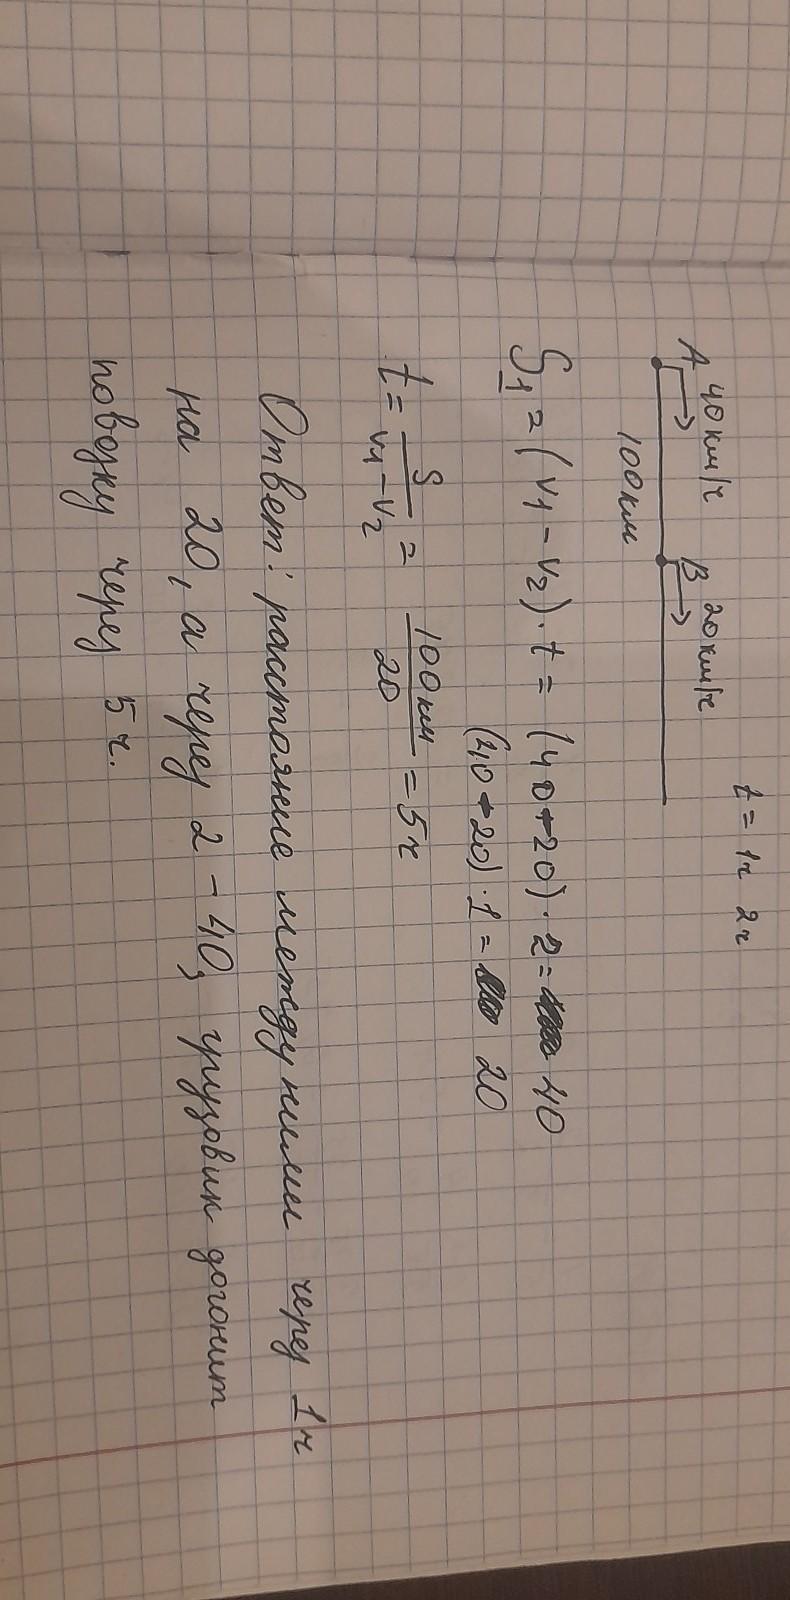 t = 1ч 2ч
A 40км/ч B 20км/ч
100км
S1 = (v1 - v2) · t = (40-20) · 2 = 40
(40-20) · 1 = 20
t = S/(v1 - v2) = 100км/20 = 5ч
Ответ: расстояние между ними через 1ч
на 20, а через 2 - 40, грузовик догонит
повозку через 5 ч.